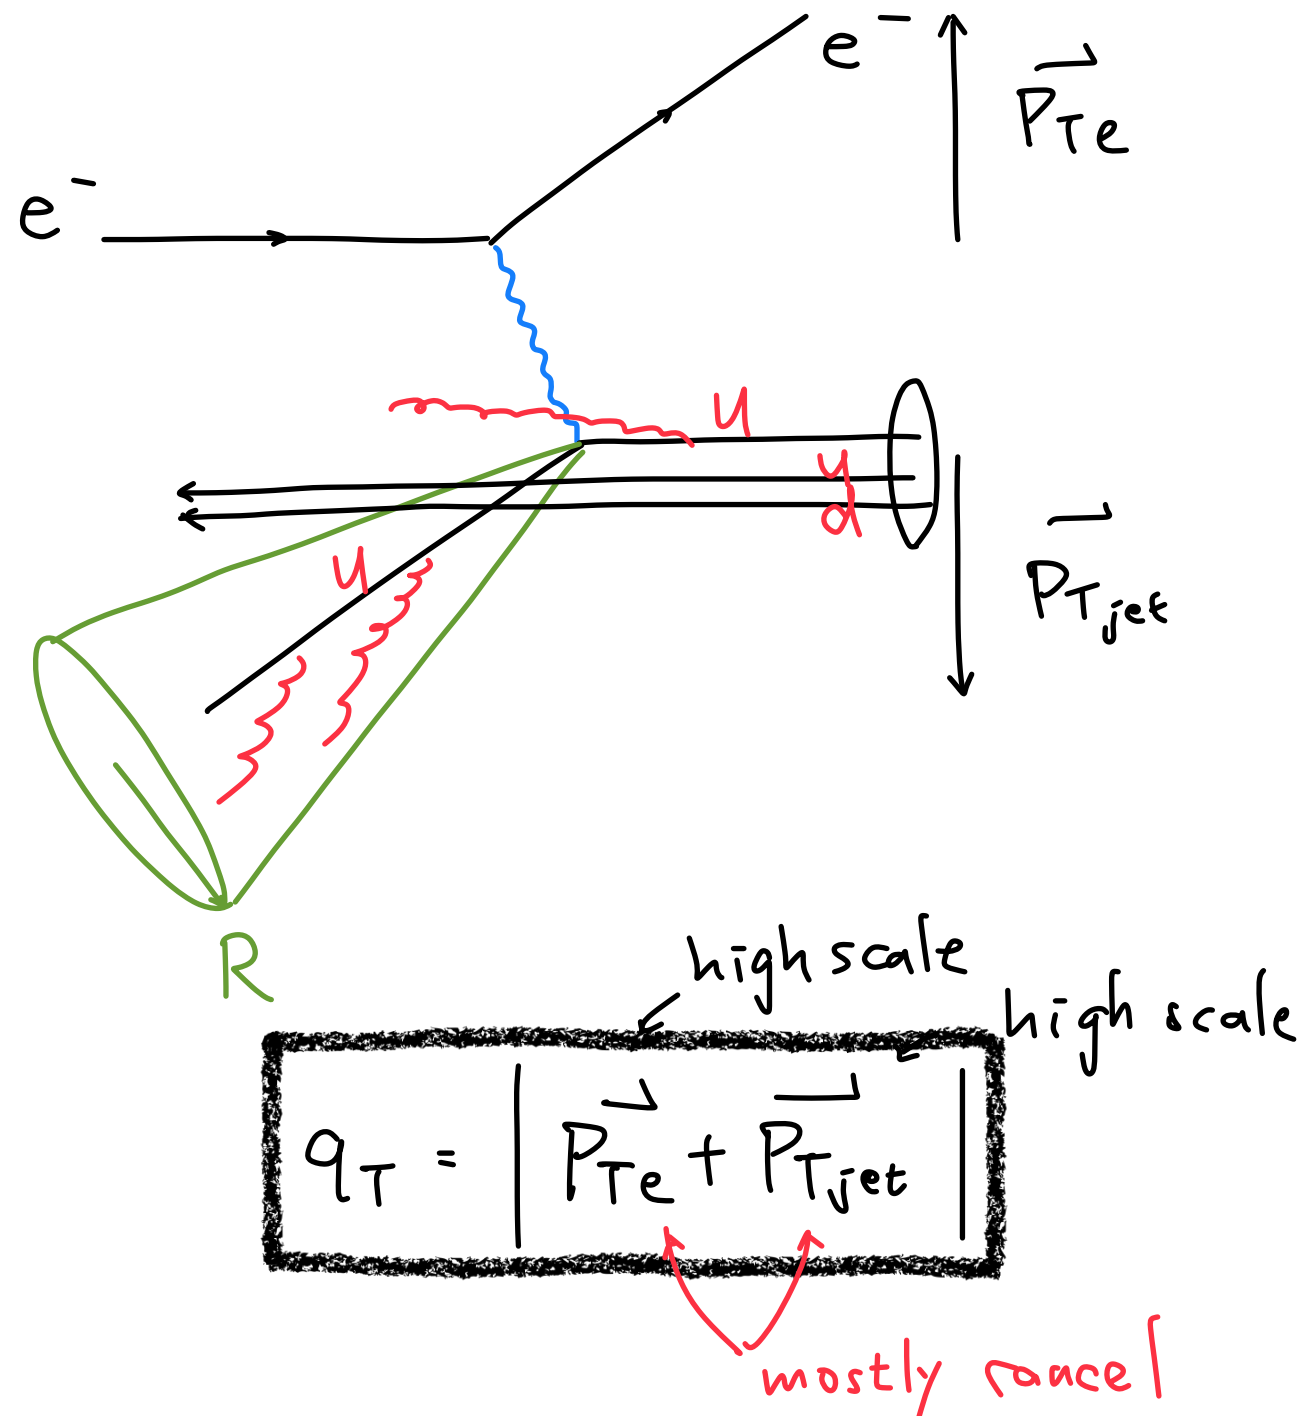 e⁻
P⃗_Te
e⁻
u
u
d
P⃗_Tjet
u
R
high scale
high scale
q_T = | P⃗_Te + P⃗_Tjet |
mostly cancel